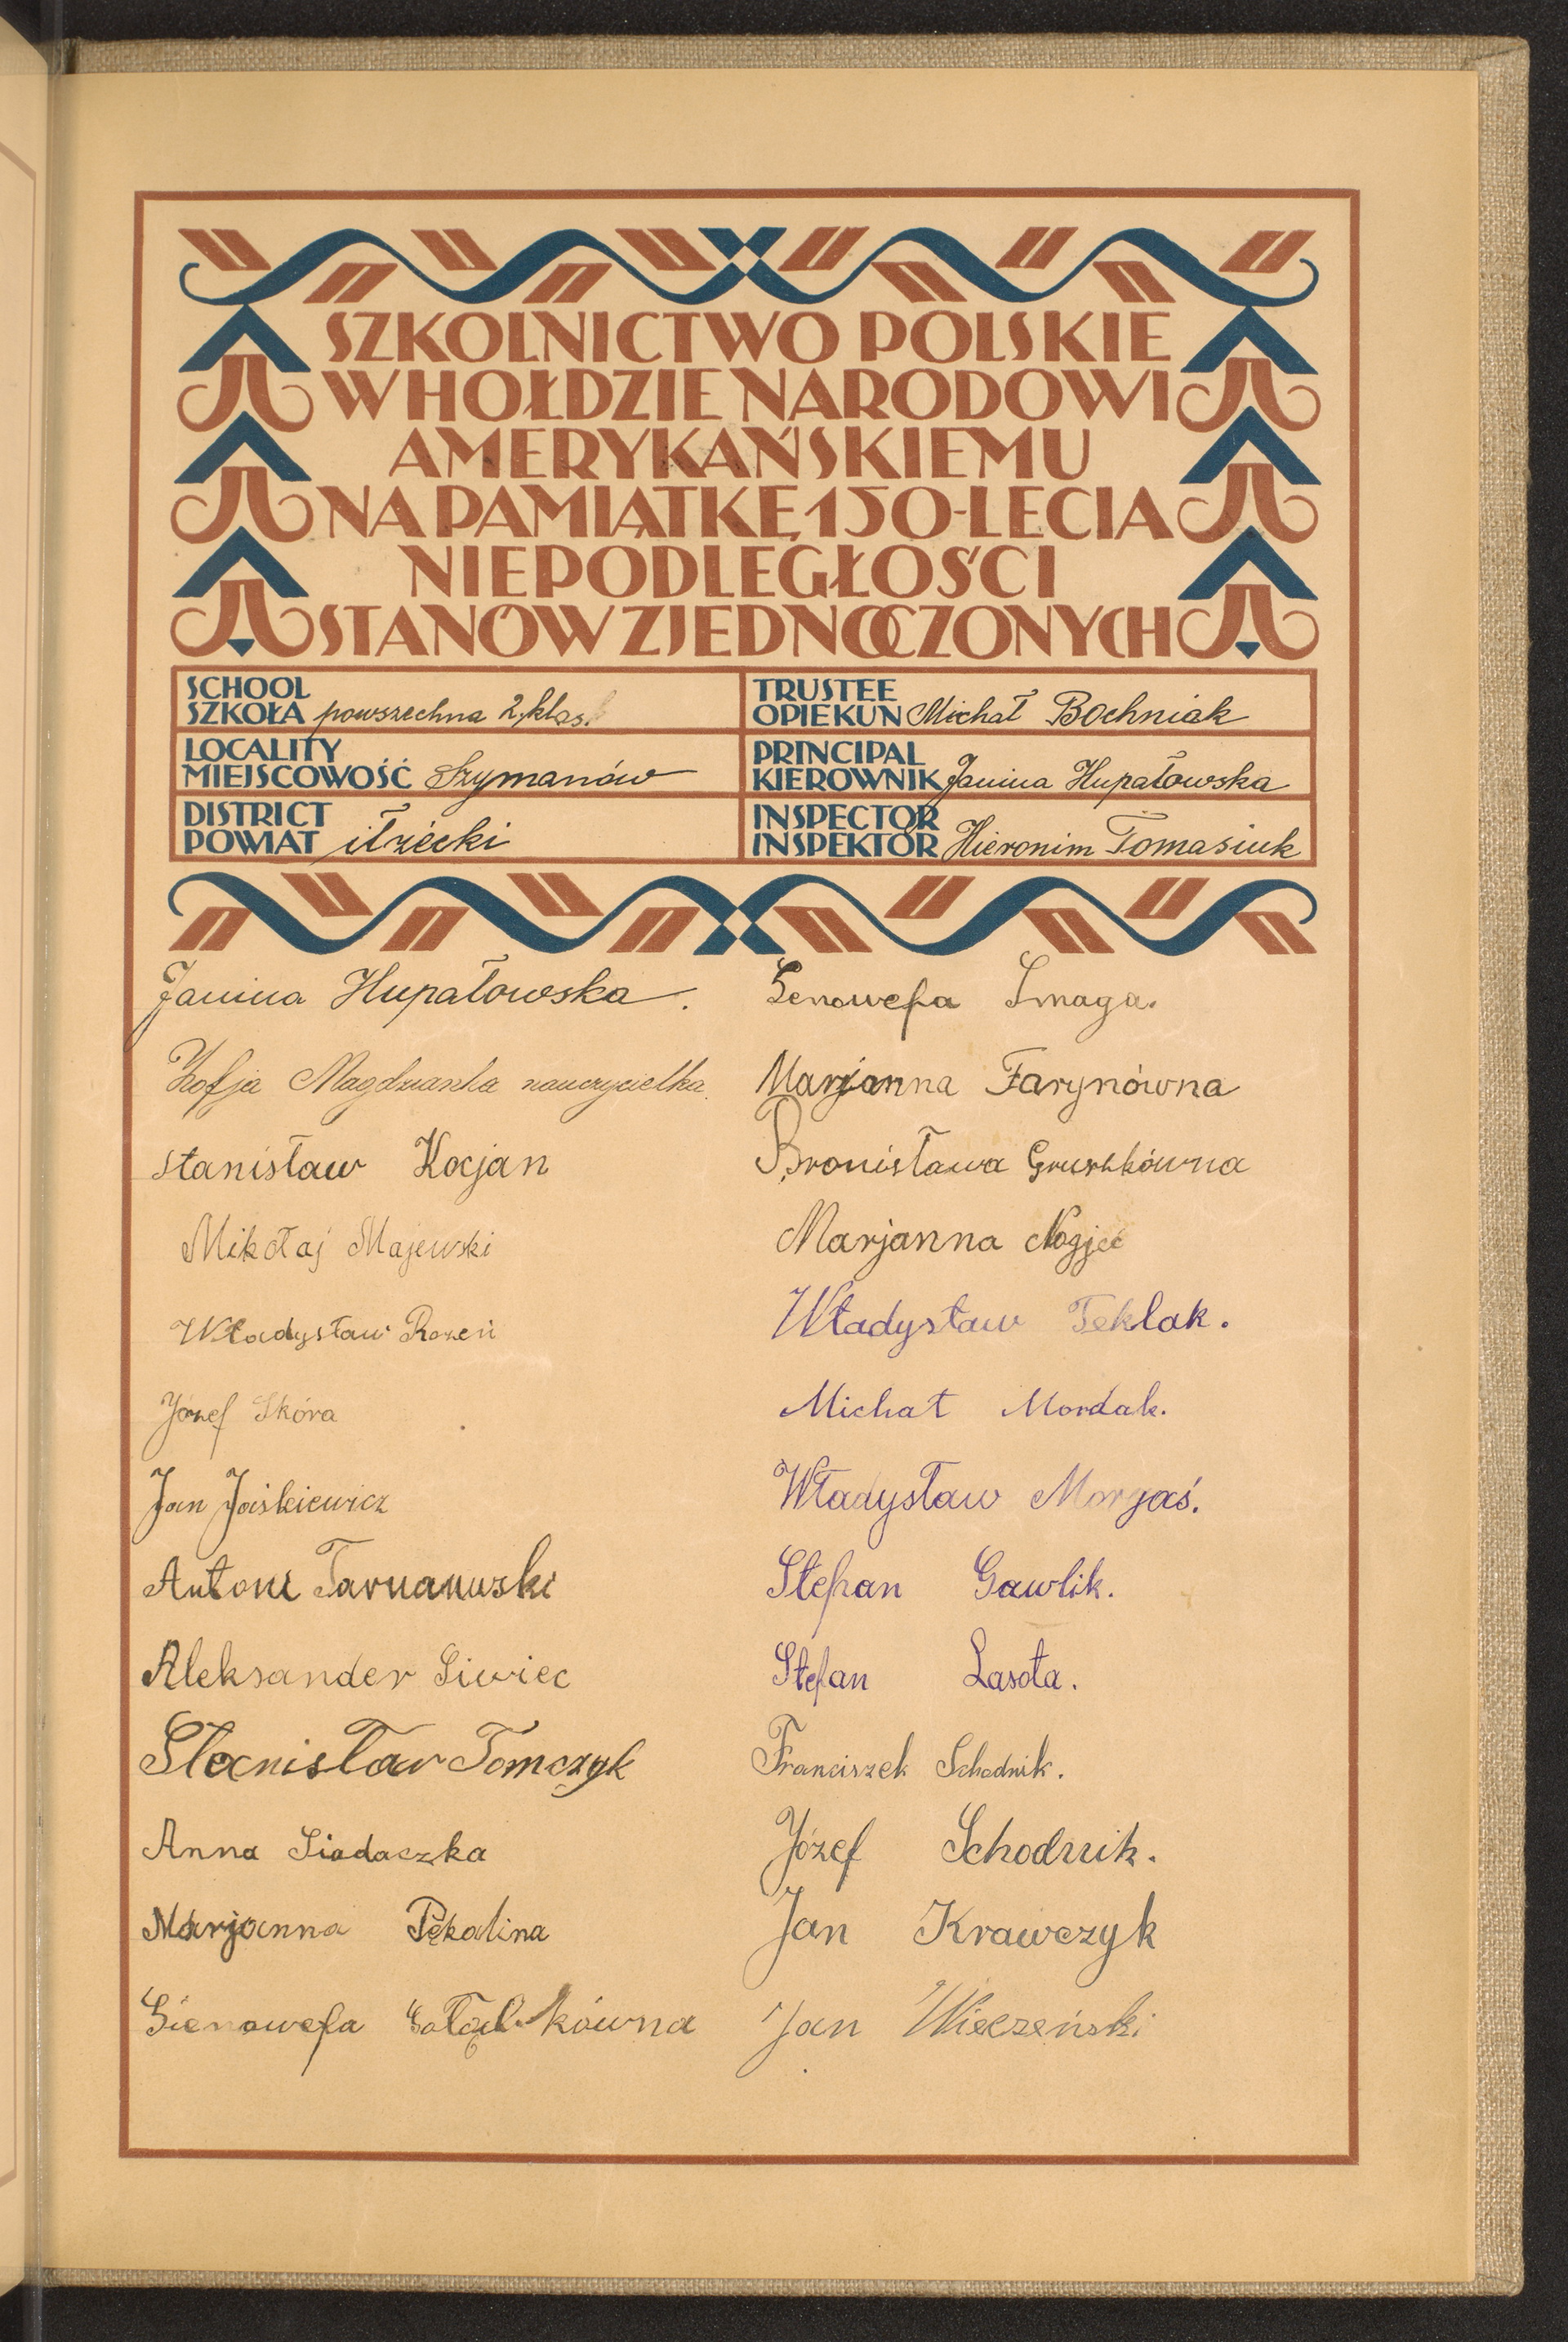 SZKOLNICTWO POLSKIE
W HOŁDZIE NARODOWI
AMERYKAŃSKIEMU
NA PAMIĄTKĘ 150-LECIA
NIEPODLEGŁOŚCI
STANÓW ZJEDNOCZONYCH
SCHOOL
SZKOŁA powszechna 2, klas.
TRUSTEE
OPIEKUN Michał Bochniak
LOCALITY
MIEJSCOWOŚĆ Szymanów
PRINCIPAL
KIEROWNIK Janina Hupałowska
DISTRICT
POWIAT iłżecki
INSPECTOR
INSPEKTOR Hieronim Tomasiuk
Janina Hupałowska.
Zofja Magdzianka nauczycielka.
Stanisław Kocjan
Mikołaj Majewski
Władysław Rozeń
Józef Skóra
Jan Jaśkiewicz
Antoni Tarnanwski
Aleksander Siwiec
Stanisław Tomczyk
Anna Siadaczka
Marjanna Pękalina
Gienowefa
Genowefa Smaga.
Marjanna Farynówna
Bronisława Gruszkówna
Marjanna Nogjeć
Władysław Teklak.
Michał Mordak.
Władysław Morgaś.
Stefan Gawlik.
Stefan Lasota.
Franciszek Schodnik.
Józef Schodnik.
Jan Krawczyk
Jan Wieczeński